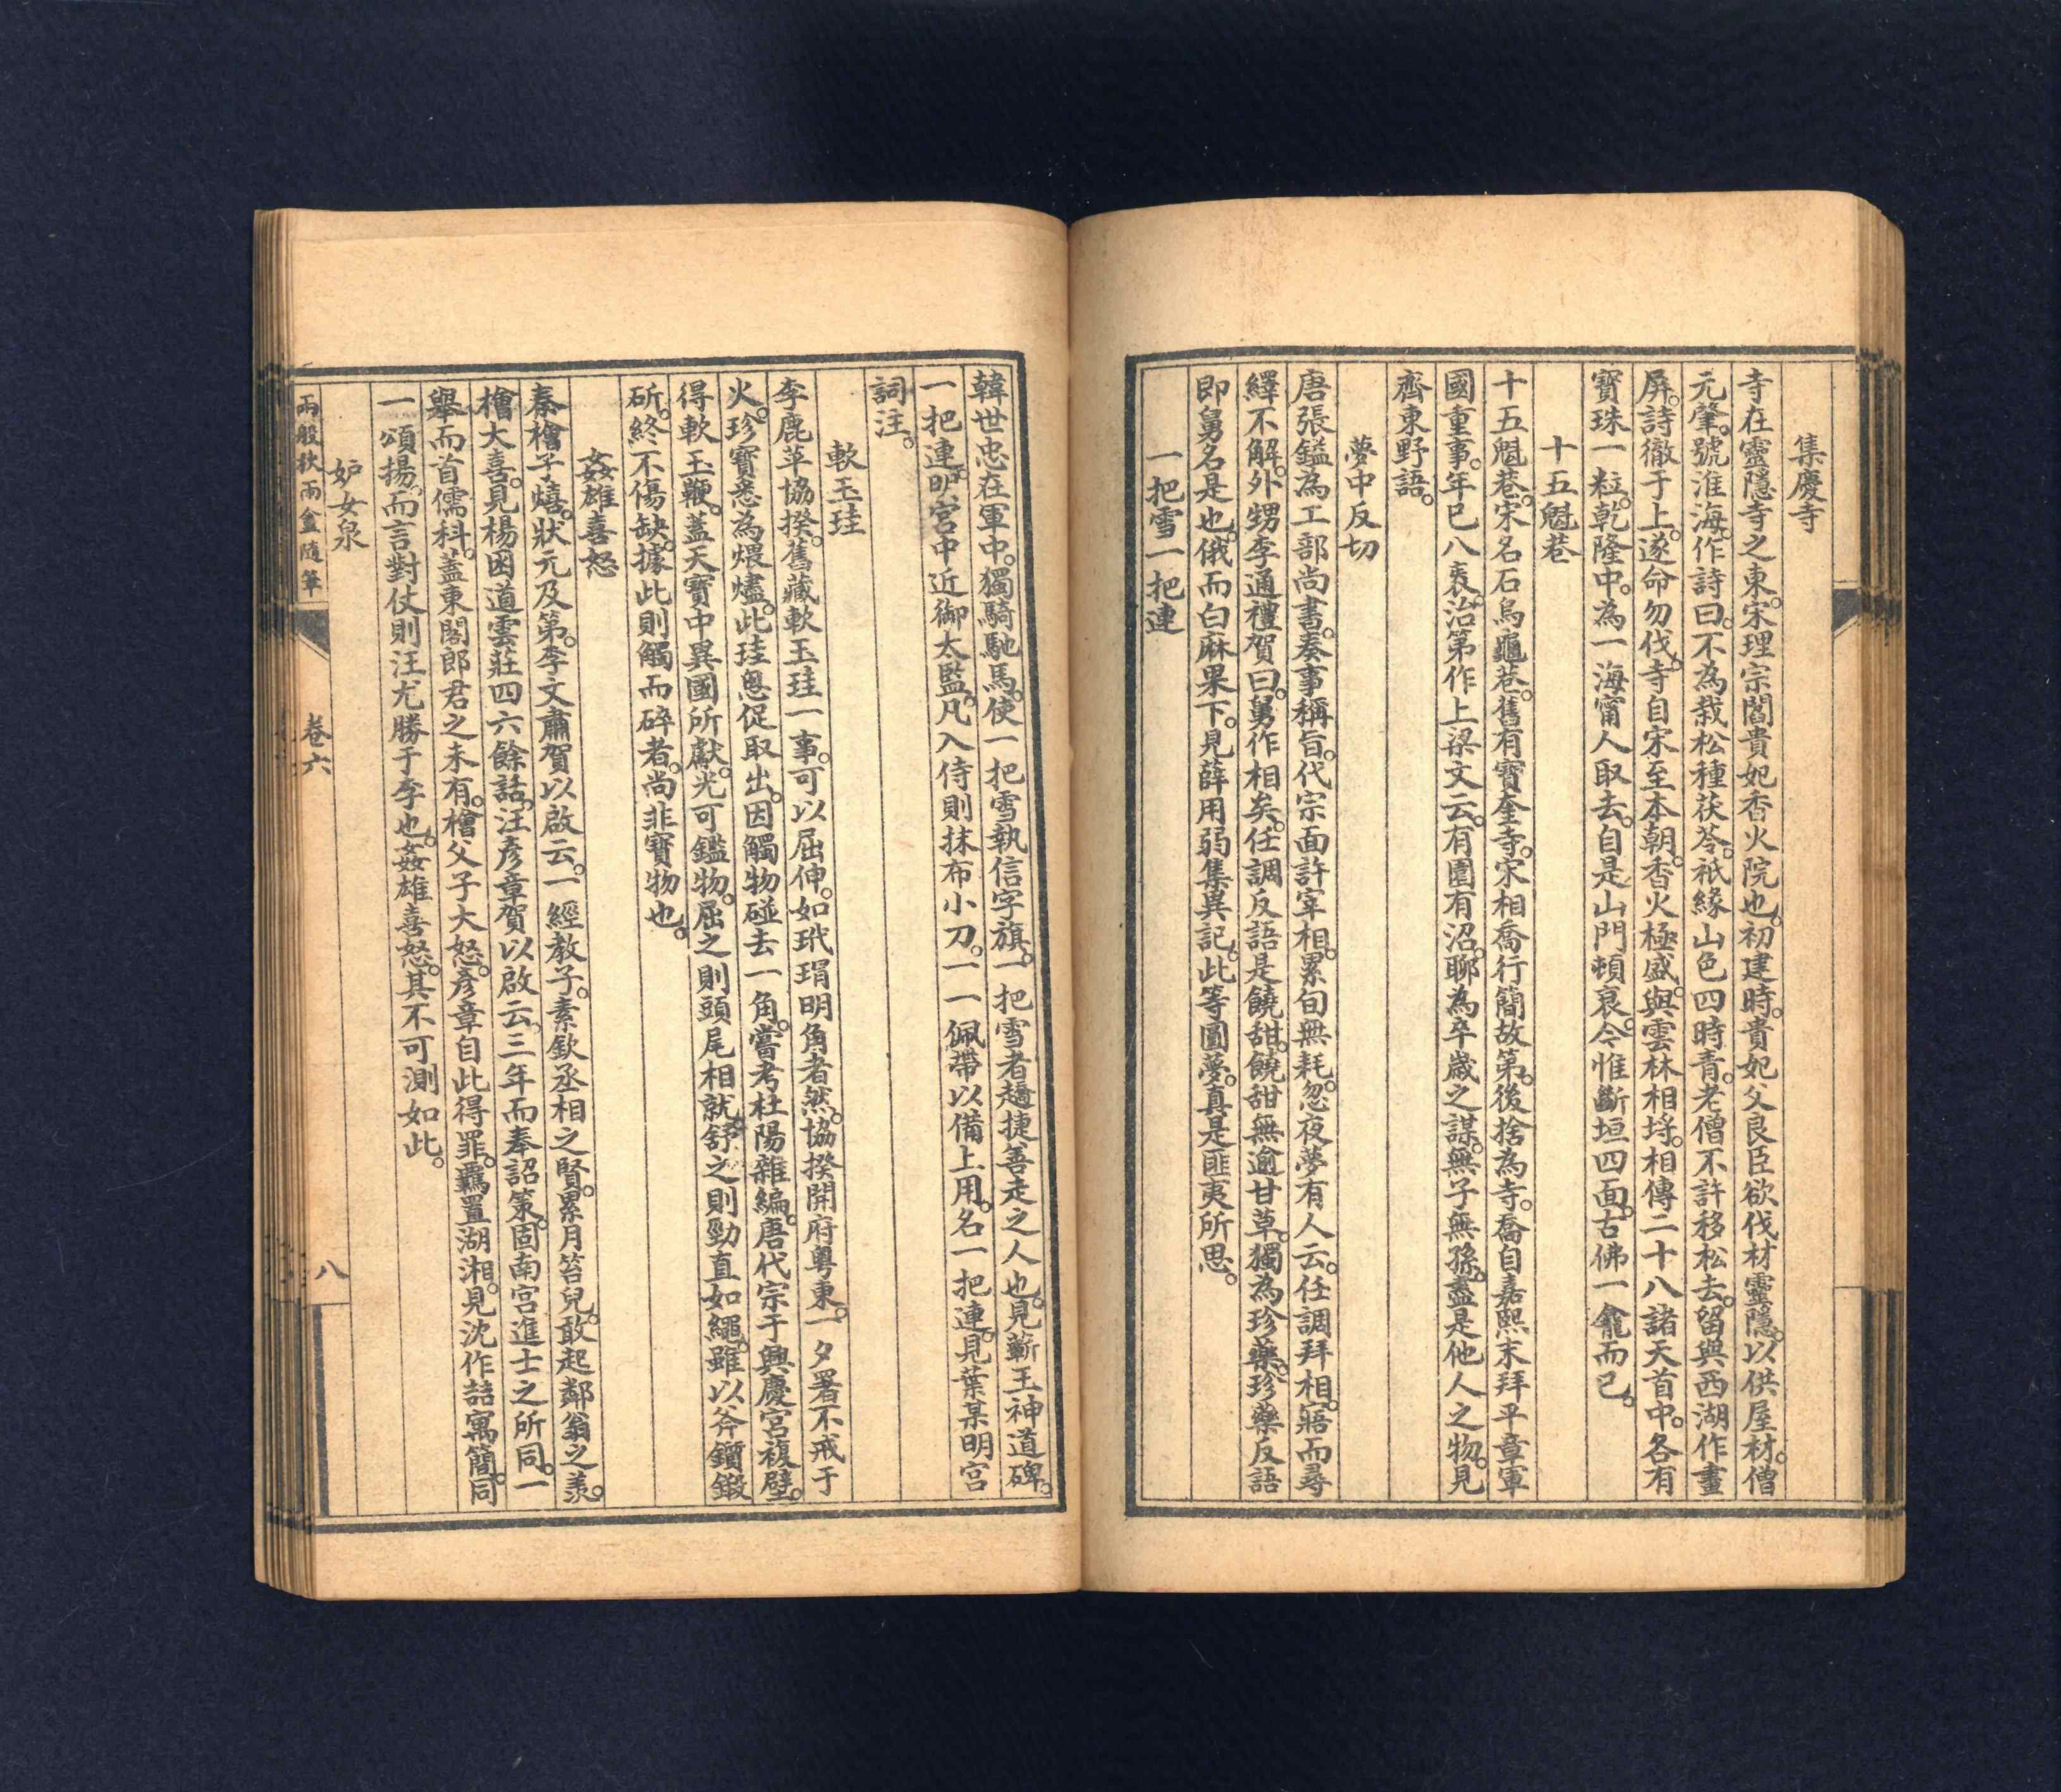 集慶寺
寺在靈隱寺之東。宋理宗閻貴妃香火院也。初建時。貴妃父良臣欲伐材靈隱。以供屋材。僧
元肇。號淮海。作詩曰。不為栽松種茯苓。祇緣山色四時青。老僧不許移松去。留與西湖作畫
屏。詩徹于上。遂命勿伐。寺自宋至本朝。香火極盛。與雲林相埒。相傳二十八諸天首中。各有
寶珠一粒。乾隆中。為一海甯人取去。自是山門頓衰。今惟斷垣四面。古佛一龕而已。
十五魁巷
十五魁巷。宋名石烏龜巷。舊有寶奎寺。宋相喬行簡故第。後捨為寺。喬自嘉熙末拜平章軍
國重事。年已八袠。治第作上梁文云。有園有沼。聊為卒歲之謀。無子無孫。盡是他人之物。見
齊東野語。
夢中反切
唐張鎰為工部尚書。奏事稱旨。代宗面許宰相。累旬無耗。忽夜夢有人云。任調拜相。寤而尋
繹不解。外甥李通禮賀曰。舅作相矣。任調反語是饒甜。饒甜無逾甘草。獨為珍藥。珍藥反語
即舅名是也。俄而白麻果下。見薛用弱集異記。此等圓夢。真是匪夷所思。
一把雪一把連
韓世忠在軍中。獨騎馳馬。使一把雪執信字旗。一把雪者趫捷善走之人也。見蘄王神道碑。
一把連。明宮中近御太監。凡入侍則抹布小刀。一一佩帶以備上用。名一把連。見葉某明宮
詞注。
軟玉珪
李鹿苹協揆。舊藏軟玉珪一事。可以屈伸。如玳瑁明角者然。協揆開府粤東。一夕署不戒于
火。珍寶悉為煨燼。此珪恖促取出。因觸物碰去一角。嘗考杜陽雜編。唐代宗于興慶宮複壁。
得軟玉鞭。蓋天寶中異國所獻。光可鑑物。屈之則頭尾相就。舒之則勁直如繩。雖以斧鑕鍛
斫。終不傷缺。據此則觸而碎者。尚非寶物也。
姦雄喜怒
秦檜子熺。狀元及第。李文肅賀以啟云。一經教子。素欽丞相之賢。累月笞兒。敢起鄰翁之羨。
檜大喜。見楊囦道雲莊四六餘話。汪彥章賀以啟云。三年而奉詔策。固南宮進士之所同。一
舉而首儒科。蓋東閣郎君之未有。檜父子大怒。彥章自此得罪。羈置湖湘。見沈作喆寓簡。同
一頌揚。而言對仗則汪尤勝于李也。姦雄喜怒。其不可測如此。
妒女泉
兩般秋雨盦隨筆 卷六 八